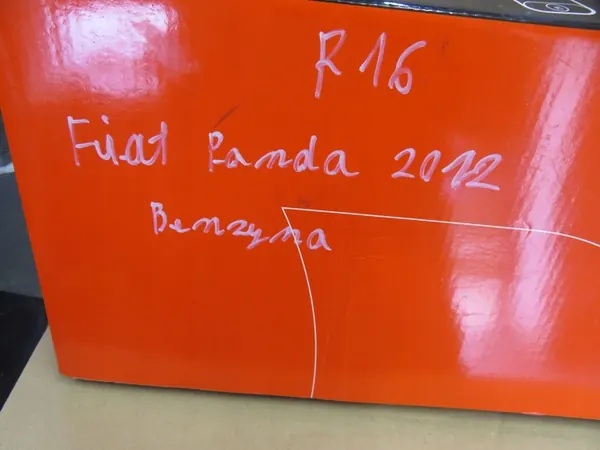 R16
Fiat Panda 2012
Benzyna